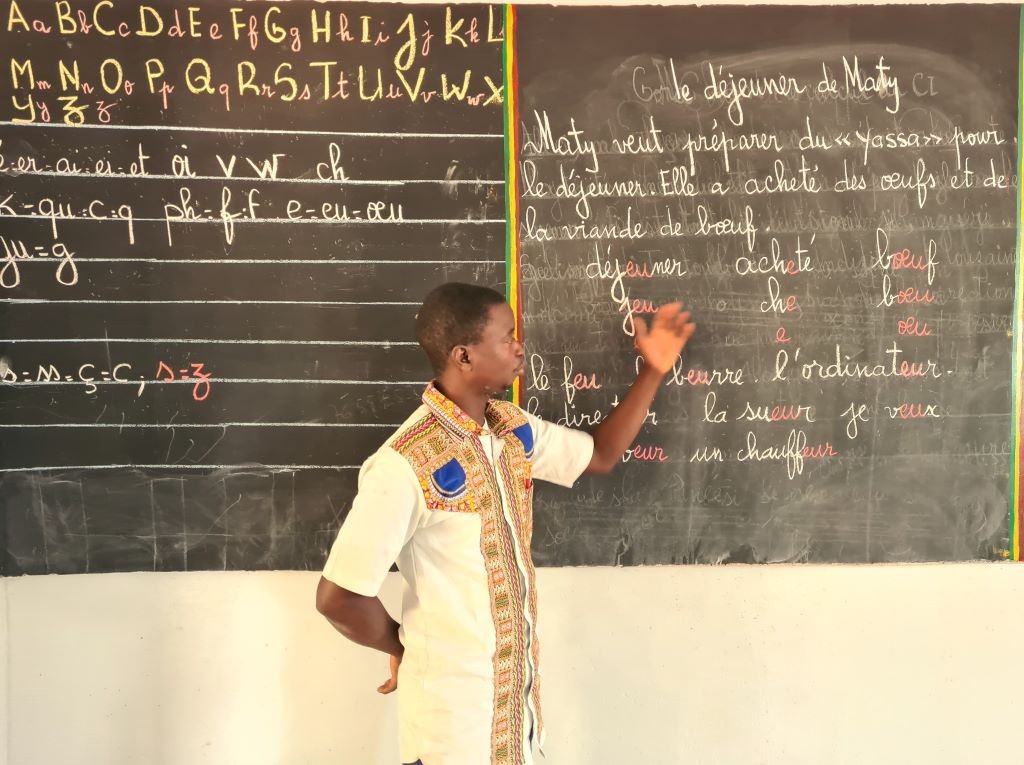 Aa Bb Cc Dd Ee Ff Gg Hh Ii Jj Kk L
Mm Nn Oo Pp Qq Rr Ss Tt Uu Vv Ww X
Yy Zz
er-ai-ei-et oi v w ch
k-qu-c-q ph-f-f e-eu-œu
ju=g
s=ss=ç=c, s=z
le déjeuner de Maty CI
Maty veut préparer du «yassa» pour
le déjeuner. Elle a acheté des œufs et de
la viande de bœuf.
déjeuner acheté bœuf
jeu che bœu
e œu
le feu beurre. l'ordinateur.
la sueur je veux
un chauffeur